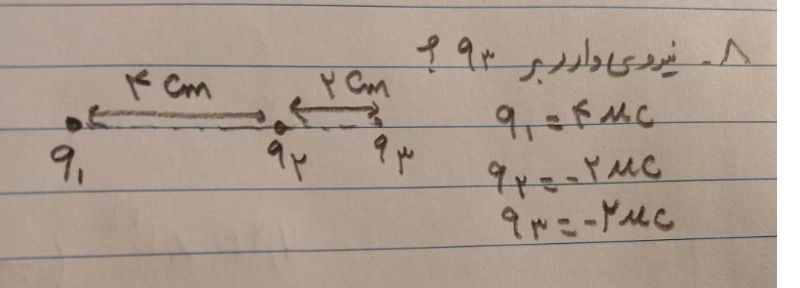 ۸- نیروی وارد بر q۳ ؟
۴ cm ۲ cm
q۱ q۲ q۳
q۱ = ۴ μC
q۲ = -۲ μC
q۳ = -۲ μC